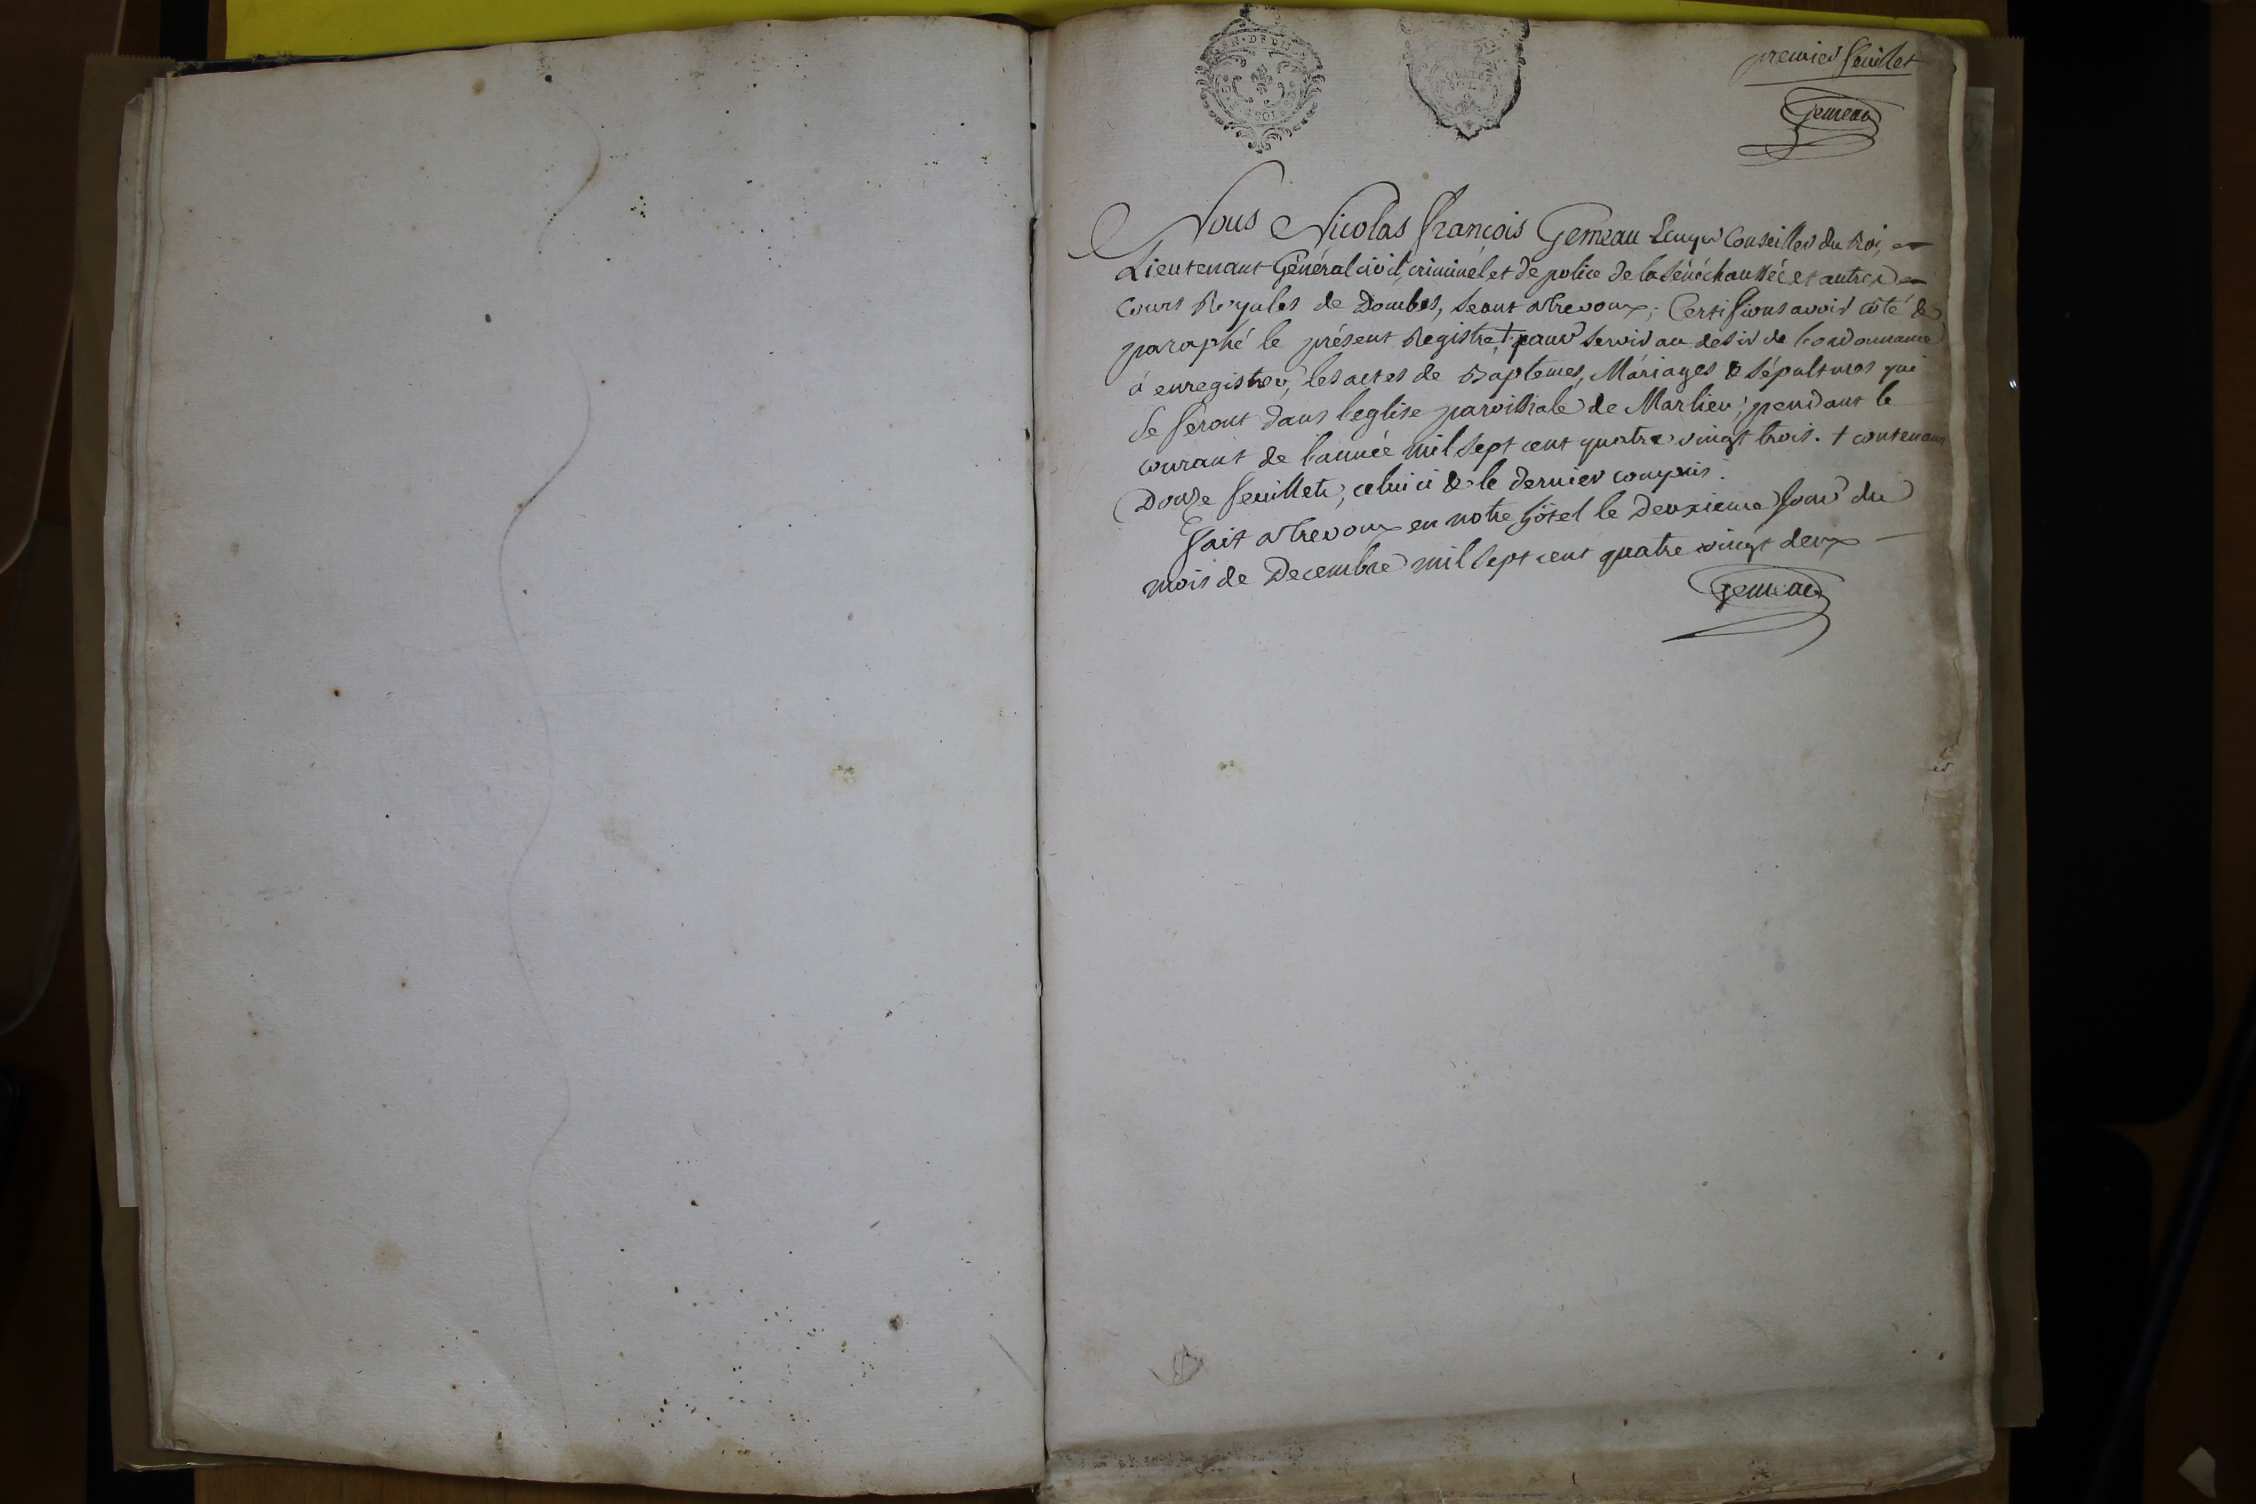 premier feuillet
Gemeau
Nous Nicolas François Gemeau Ecuyer Conseiller du Roi,
Lieutenant Général civil, criminel et de police de la Sénéchaussée et autres
Cours Royales de Dombes, Seant a Trevoux; Certifions avoir coté &
paraphé le présent Registre, + pour servir au desir de l'ordonnance
à enregistrer, les actes de Baptemes, Máriages & Sépultures qui
se feront dans l'eglise paroissiale de Marlieu, pendant le
courant de l'année mil sept cent quatre vingt trois. + contenant
Douze feuillets, celui ci & le dernier compris.
Fait a Trevoux en notre hôtel le deuxieme jour du
mois de Decembre mil sept cent quatre vingt deux
Gemeau